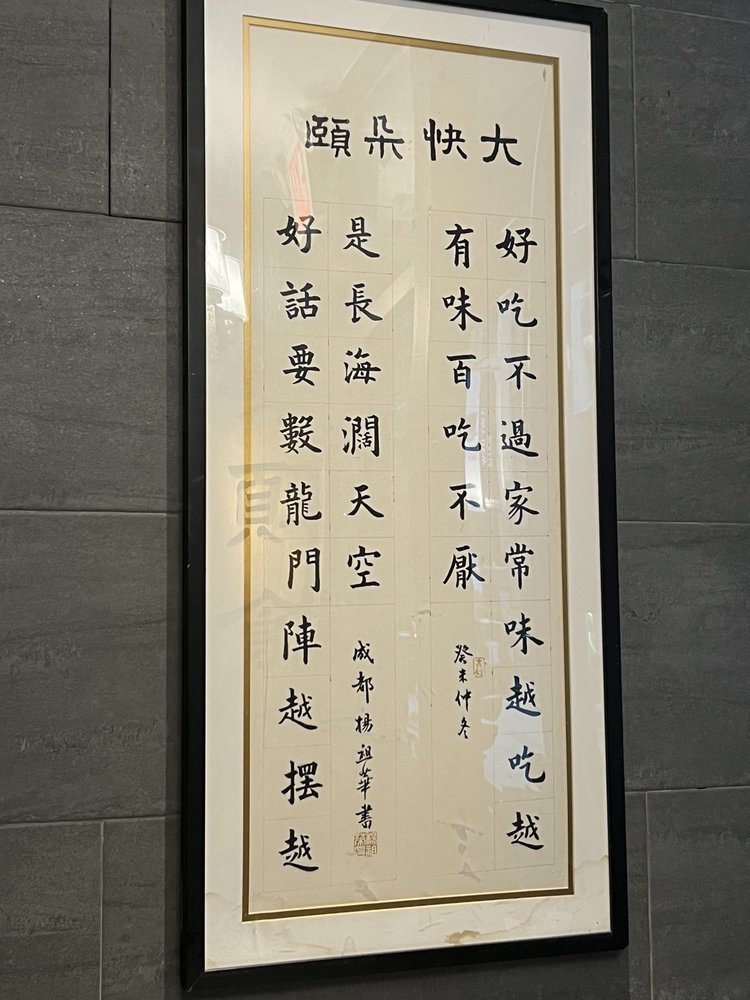 大快朵頤
好吃不過家常味越吃越
有味百吃不厭
癸未仲冬
好話要數龍門陣越摆越
是長海濶天空
成都楊祖華書